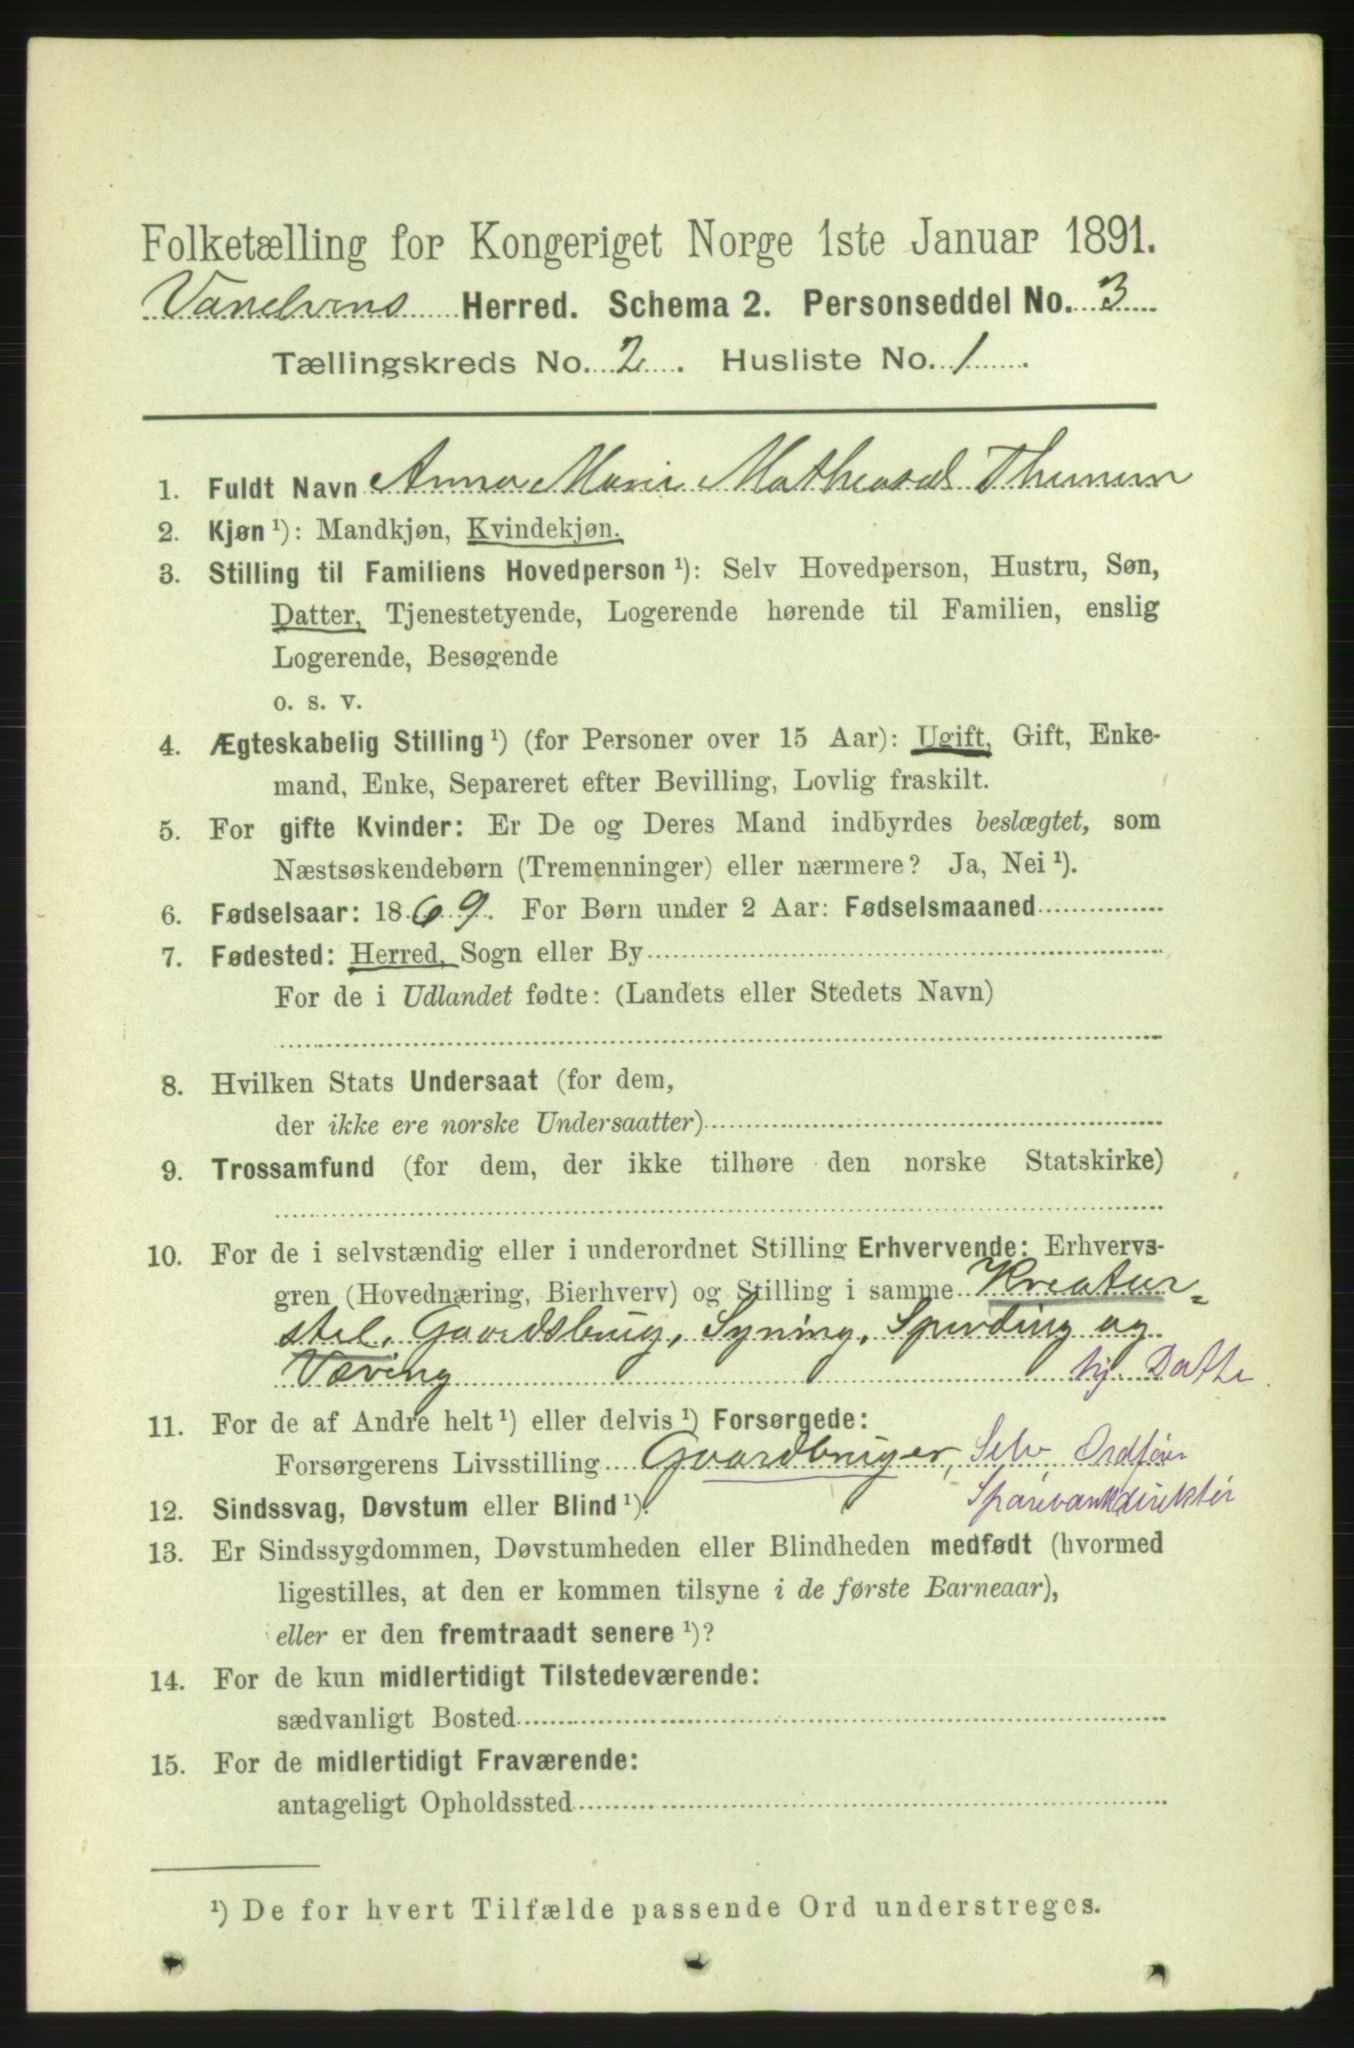 Folketælling for Kongeriget Norge 1ste Januar 1891.
Vanelvens Herred. Schema 2. Personseddel No. 3
Tællingskreds No. 2. Husliste No. 1.
1. Fuldt Navn Anna Marie Matheasd.
2. Kjøn ¹): Mandkjøn, Kvindekjøn.
3. Stilling til Familiens Hovedperson ¹): Selv Hovedperson, Hustru, Søn,
Datter, Tjenestetyende, Logerende hørende til Familien, enslig
Logerende, Besøgende
o. s. v.
4. Ægteskabelig Stilling ¹) (for Personer over 15 Aar): Ugift, Gift, Enke-
mand, Enke, Separeret efter Bevilling, Lovlig fraskilt.
5. For gifte Kvinder: Er De og Deres Mand indbyrdes beslægtet, som
Næstsøskendebørn (Tremenninger) eller nærmere? Ja, Nei ¹).
6. Fødselsaar: 1869. For Børn under 2 Aar: Fødselsmaaned
7. Fødested: Herred, Sogn eller By
For de i Udlandet fødte: (Landets eller Stedets Navn)
8. Hvilken Stats Undersaat (for dem,
der ikke ere norske Undersaatter)
9. Trossamfund (for dem, der ikke tilhøre den norske Statskirke)
10. For de i selvstændig eller i underordnet Stilling Erhvervende: Erhvervs-
gren (Hovednæring, Bierhverv) og Stilling i samme Kreatur-
stel, Gaardsbrug, Syning, Spinding og
Væving hj. Datte
11. For de af Andre helt ¹) eller delvis ¹) Forsørgede:
Forsørgerens Livsstilling Gaardbruger, Selv, Ordfører
Sparebankdirektør
12. Sindssvag, Døvstum eller Blind ¹).
13. Er Sindssygdommen, Døvstumheden eller Blindheden medfødt (hvormed
ligestilles, at den er kommen tilsyne i de første Barneaar),
eller er den fremtraadt senere ¹)?
14. For de kun midlertidigt Tilstedeværende:
sædvanligt Bosted
15. For de midlertidigt Fraværende:
antageligt Opholdssted
¹) De for hvert Tilfælde passende Ord understreges.